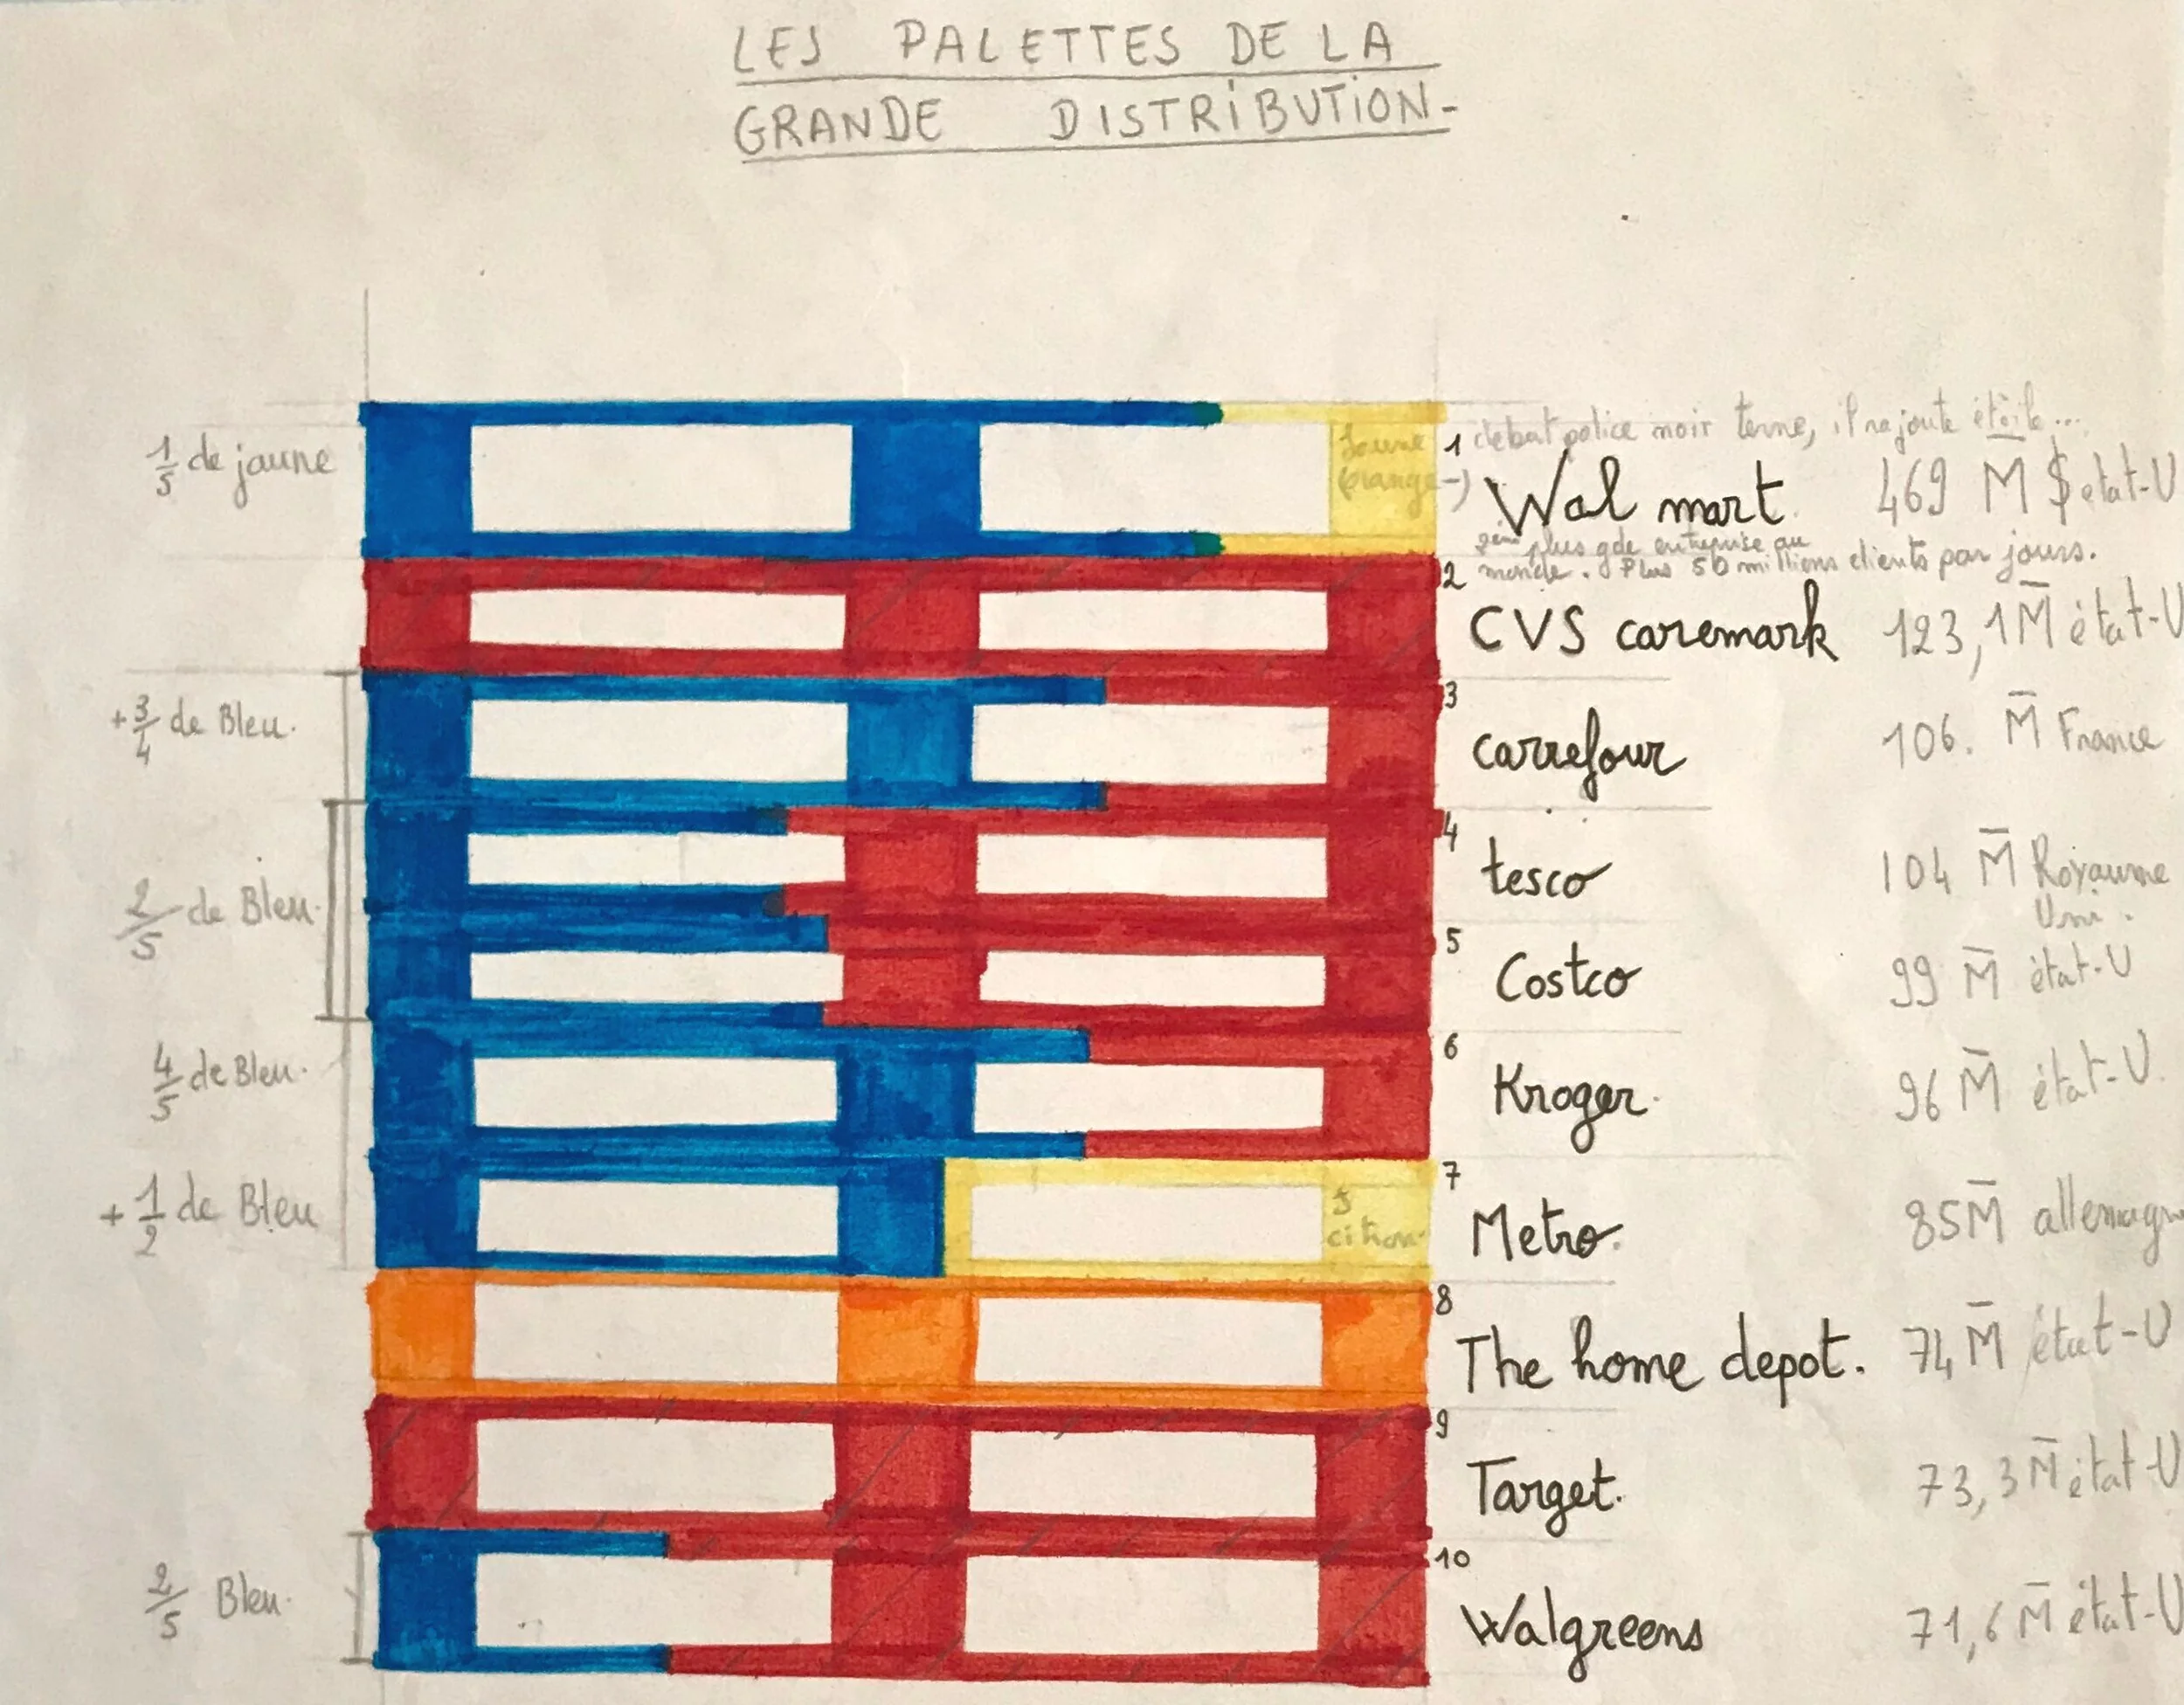 LES PALETTES DE LA
GRANDE DISTRIBUTION-
1/5 de jaune
Jaune
(orange-)
1 debat police noir terne, il rajoute étoile...
Wal mart. 469 M̅ $ état-U
2ème plus gde entreprise au
monde. Plus 50 millions clients par jours.
2
CVS caremark 123,1 M̅ état-U
+ 3/4 de Bleu.
3
carrefour 106. M̅ France
4
tesco 104 M̅ Royaume
Uni.
2/5 de Bleu.
5
Costco 99 M̅ état-U
4/5 de Bleu.
6
Kroger. 96 M̅ état-U.
+ 1/2 de Bleu
7
J
citron.
Metro. 85 M̅ allemagn
8
The home depot. 74 M̅ état-U
9
Target. 73,3 M̅ état-U
10
2/5 Bleu.
Walgreens 71,6 M̅ état-U